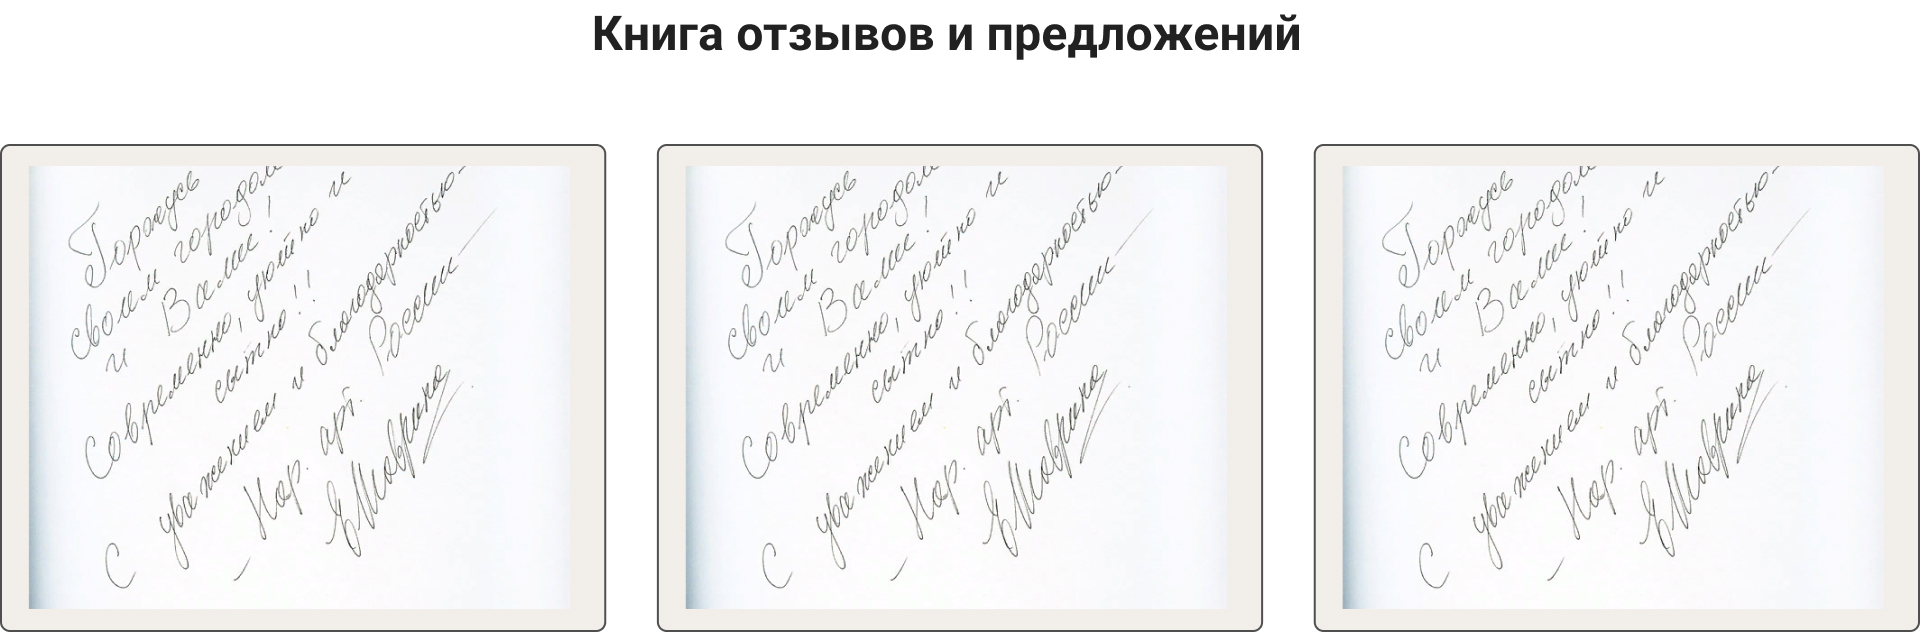 Книга отзывов и предложений
Горжусь
своим городом
и Вами!
Современно, уютно и
сытно!!
С уважением и благодарностью-
Нар. арт. России
Горжусь
своим городом
и Вами!
Современно, уютно и
сытно!!
С уважением и благодарностью-
Нар. арт. России
Горжусь
своим городом
и Вами!
Современно, уютно и
сытно!!
С уважением и благодарностью-
Нар. арт. России